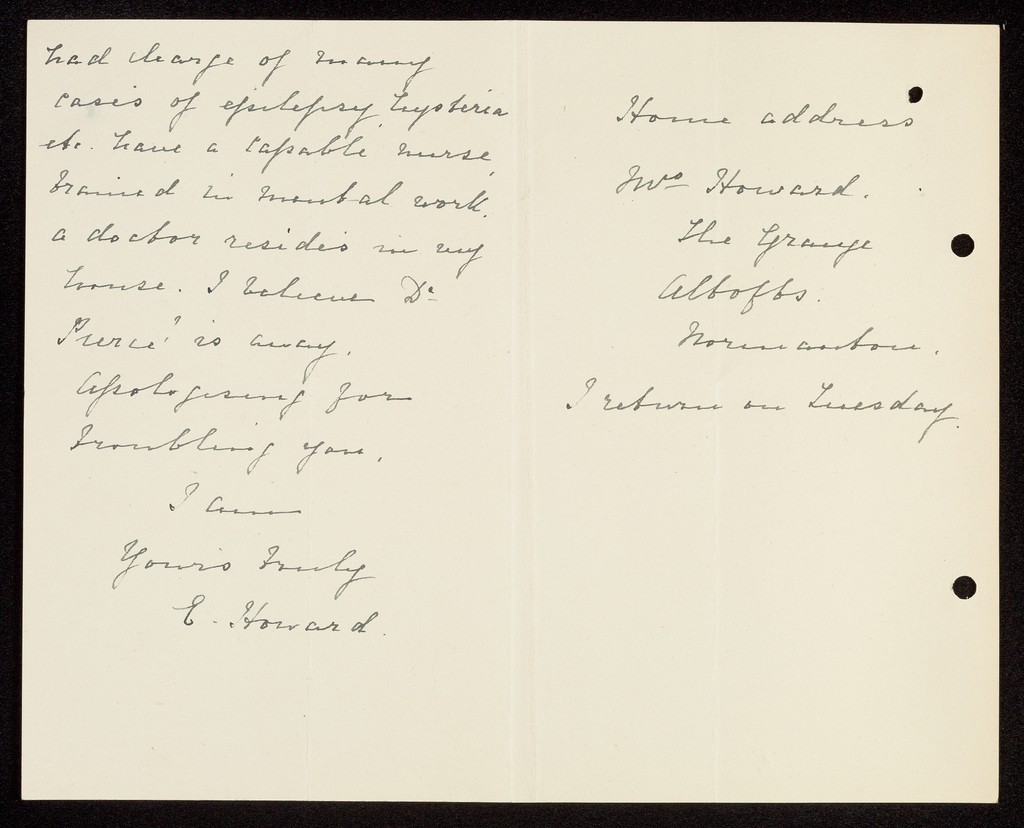 had charge of many
cases of epilepsy, hysteria
etc. have a capable nurse,
trained in mental work.
a doctor resides in my
house. I believe Dr
Pierce' is away.
Apologising for
troubling you,
I am
Yours truly
E. Howard.
Home address
Mrs Howard.
The Grange
Altofts.
Normanton.
I return on Tuesday.